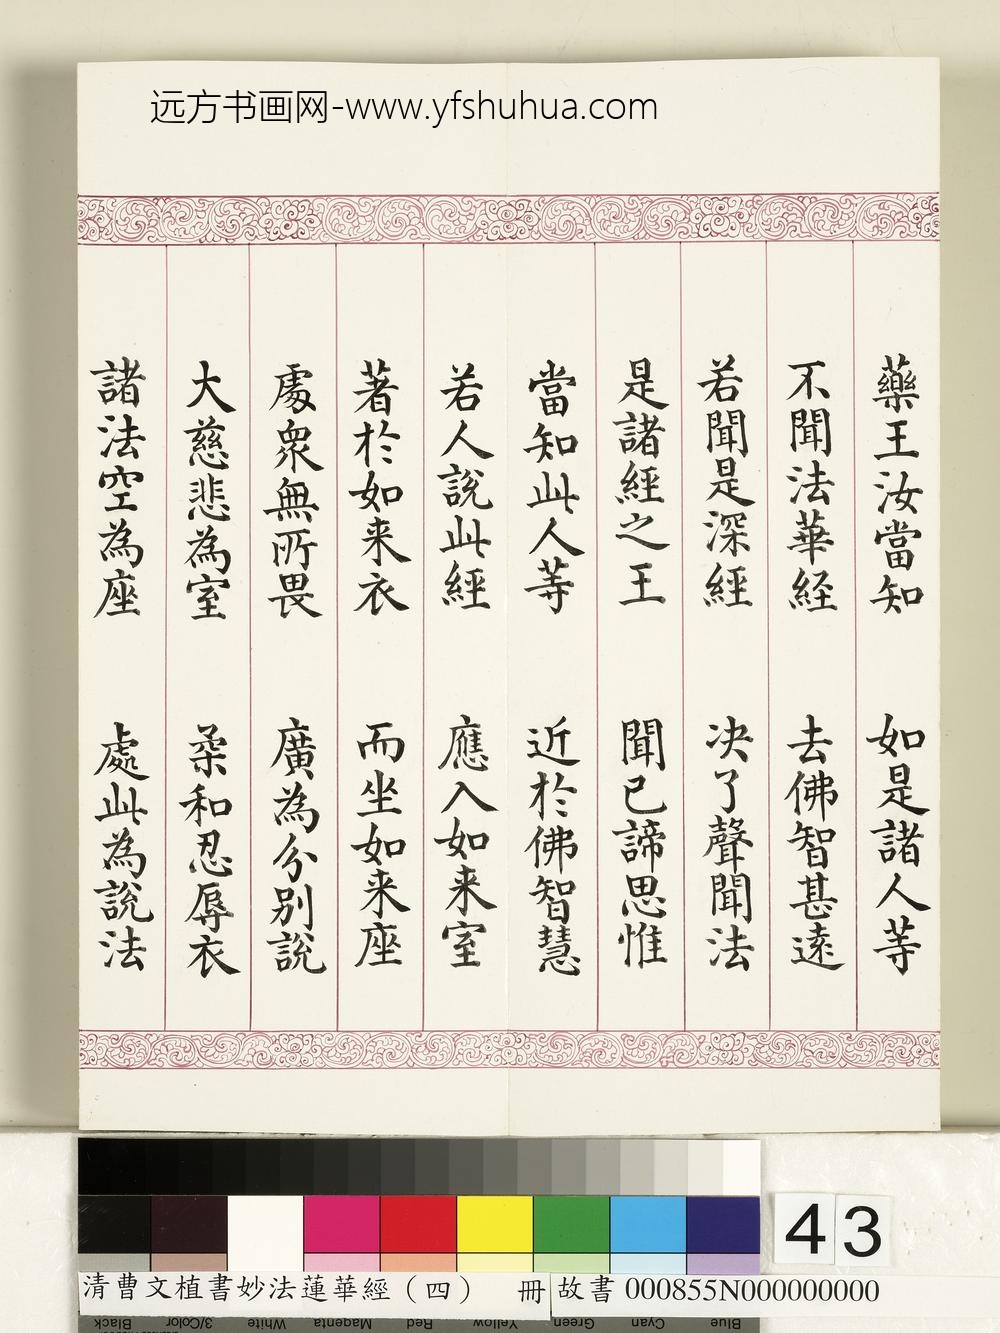 远方书画网-www.yfshuhua.com
藥王汝當知 如是諸人等
不聞法華経 去佛智甚遠
若聞是深經 决了聲聞法
是諸經之王 聞已諦思惟
當知此人等 近於佛智慧
若人說此經 應入如来室
著於如来衣 而坐如来座
處眾無所畏 廣為分别說
大慈悲為室 柔和忍辱衣
諸法空為座 處此為說法
43
清曹文植書妙法蓮華經（四） 冊
故書 000855N000000000
Black 3/Color White Magenta Red Yellow Green Cyan Blue